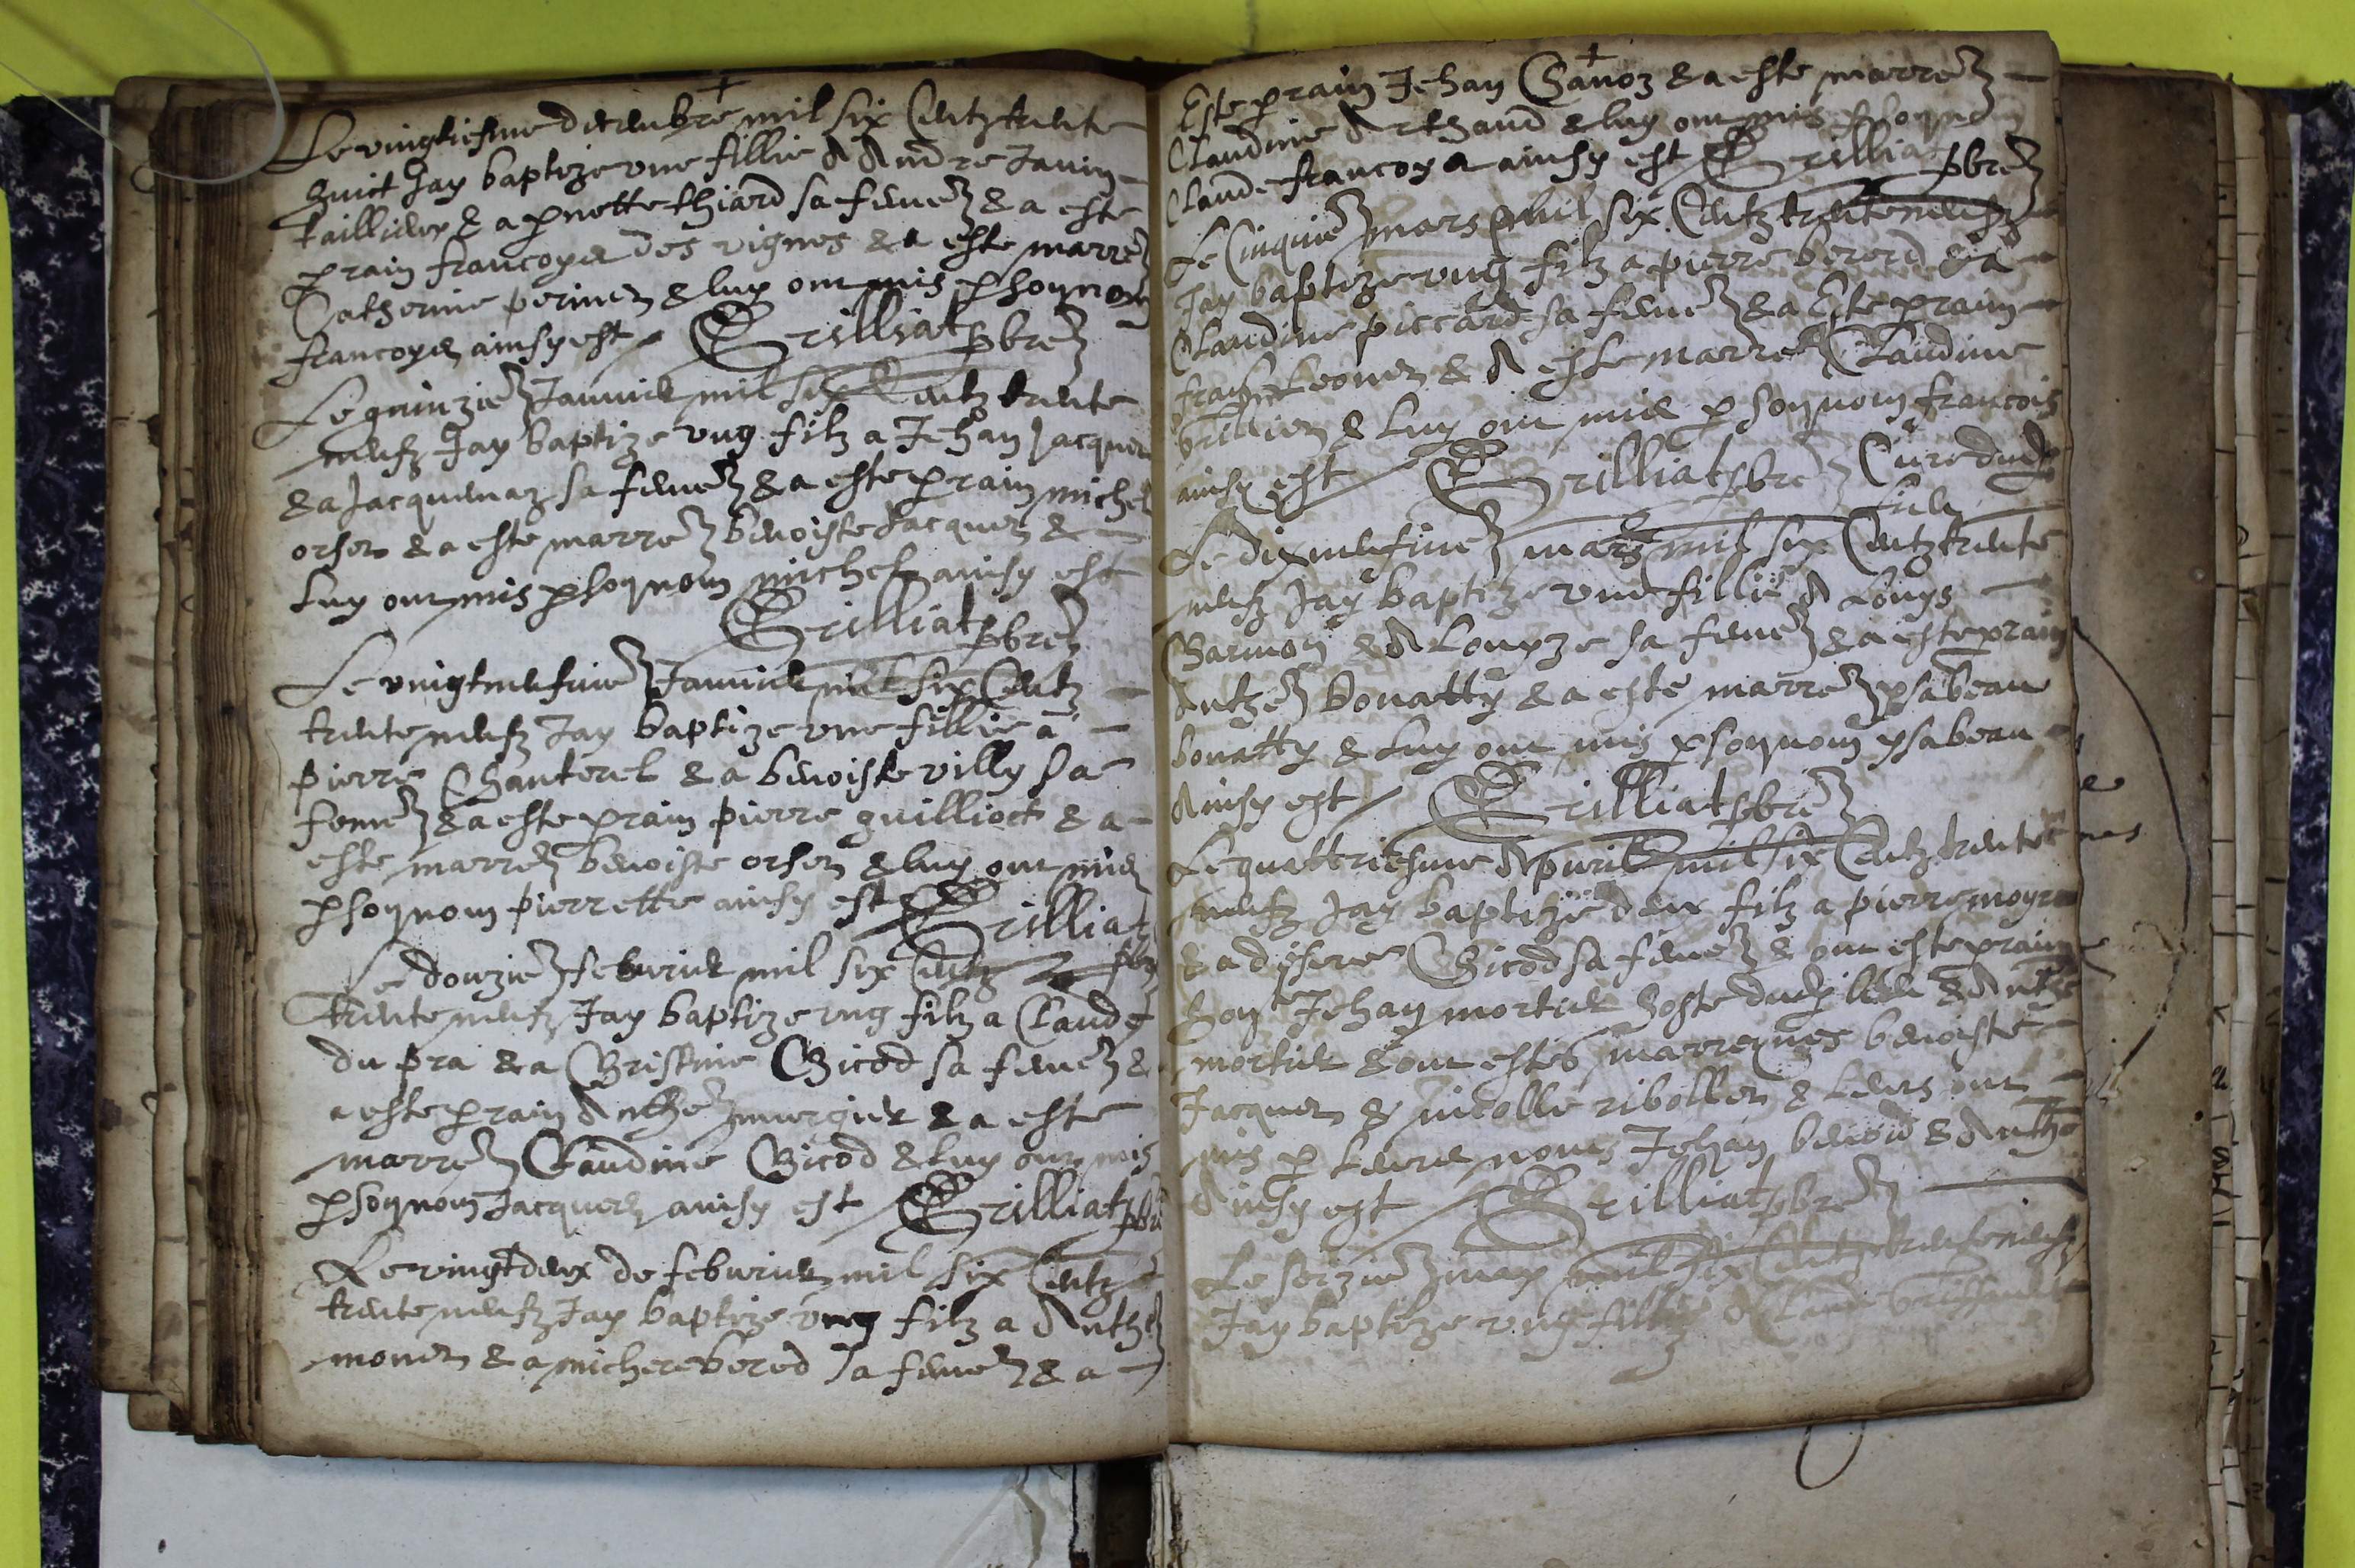 Le vingtiesme decembre mil six Centz trente
huict Jay baptize une fillie A Andre Janin
taillieur & a pnette thiard sa feme & a este
prain francoys des vignes & a este marre
Catherine perinet & luy ont mis p soynom
francoyse ainsy est Grilliat pbre
Le quinzie Janvier mil six Centz trente
neufz Jay baptize ung filz a Jehan Jacquet
& a Jacquemaz sa feme & a este prain michel
orset & a este marre benoiste Jacquet &
luy ont mis p soynom michel ainsy est
Grilliat pbre
Le vingtneufvie Janvier mil six Centz
trente neufz Jay baptize une fillie a
pierre Chanterel & a benoiste villy sa
feme & a este prain pierre guilliott & a
este marre benoiste orset & luy ont mis
p soynom pierrette ainsy est Grilliat
pbre
Le douzie febvrier mil six Centz
trente neufz Jay baptize ung filz a Claude
du pra & a Christine Chicod sa feme &
a este prain Anthe murgier & a este
marre Claudine Chicod & luy ont mis
p soynom Jacques ainsy est Grilliat pbre
Le vingtdeux de febvrier mil six Centz
trente neufz Jay baptize ung filz a Anthe
monet & a michere berod sa feme & a
Este prain Jehan Chanoz & a este marre
Claudine Arthaud & luy ont mis p soynom
Claude francoys ainsy est Grilliat
pbre
Le Cinquie mars mil six Centz trente neufz
Jay baptize ung filz a pierre berod & a
Claudine piccard sa feme & a Este prain
franc & A este marre Claudine
brillien & luy ont mis p soynom francois
ainsy est Grilliat pbre Cure dud
lieu
Le dixneufvie mars mil six Centz trente
neufz Jay baptize une fillie A Louys
Charmon & A Louyze sa feme & a este prain
Anthe bonatty & a este marre ysabeau
bonatty & luy ont mis p soynom ysabeau
Ainsy est Grilliat pbre
Le quattriesme Apvril mil six Centz trente
neufz Jay baptize deux filz a pierre moyre
& a Chicod sa feme & ont este prain
hon Jehan mortier hoste dud lieu & Anthe
mortier & ont estes marreynes benoiste
Jacquet & nicolle ribollet & leurs ont
mis p leurs noms Jehan benoid & Anthe
Ainsy est Grilliat pbre
Le seizie may mil six Centz trente neufz
Jay baptize ung A Claude